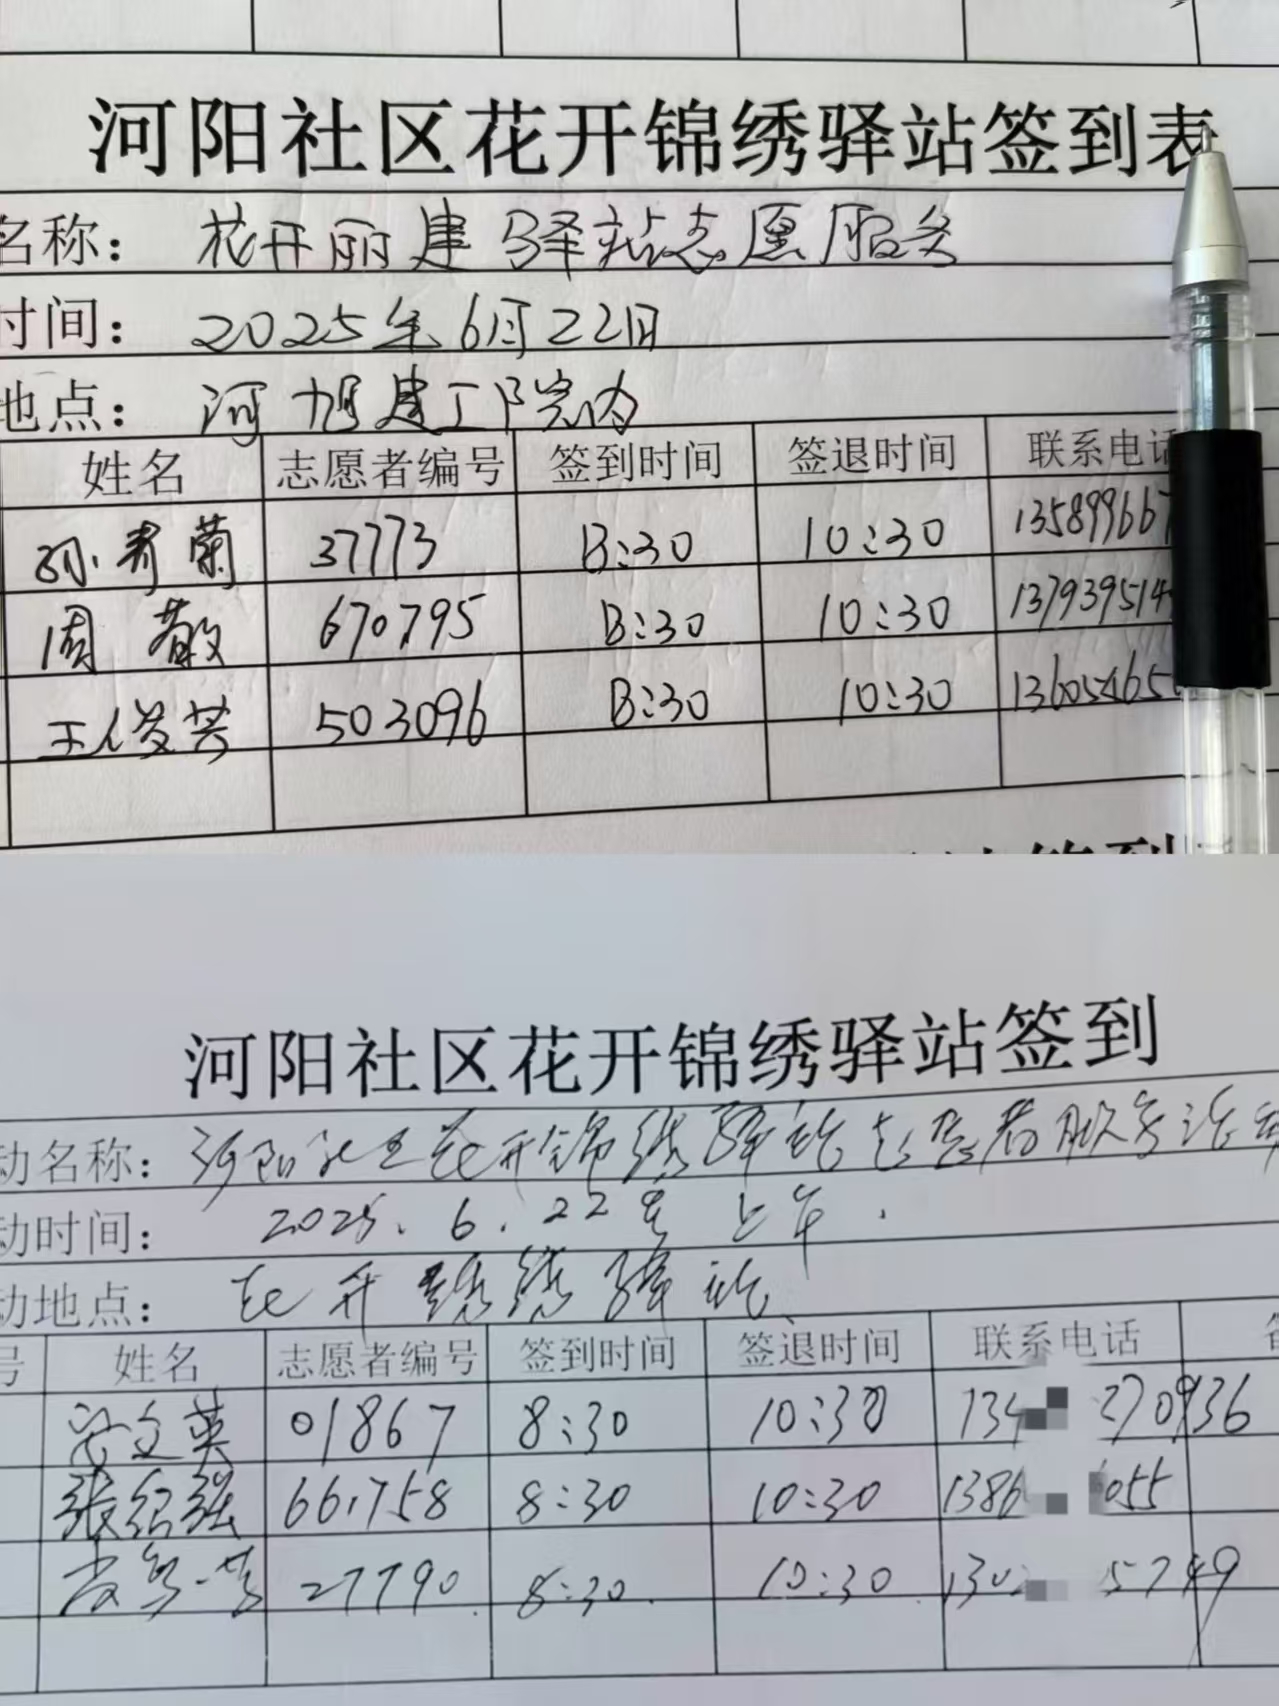 河阳社区花开锦绣驿站签到表
名称： 花开丽建驿站志愿服务
时间： 2025年6月22日
地点： 河旭建工院内
姓名 志愿者编号 签到时间 签退时间 联系电话
孙秀菊 37773 8:30 10:30 13589966
周敬 670795 8:30 10:30 137939514
王俊英 503096 8:30 10:30 13605465
河阳社区花开锦绣驿站签到
动名称： 河阳社区花开锦绣驿站志愿者服务活动
动时间： 2025.6.22号 上午.
动地点： 花开锦绣驿站
号 姓名 志愿者编号 签到时间 签退时间 联系电话
文英 01867 8:30 10:30 134 270936
张绍强 661758 8:30 10:30 1386 6055
27790 8:30 10:30 130 5749